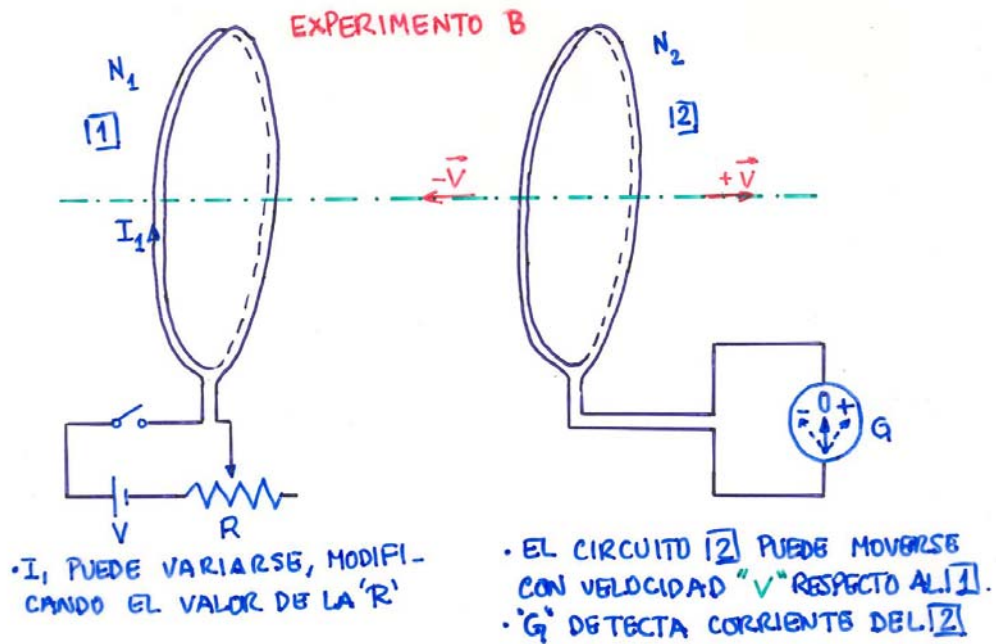 EXPERIMENTO B
N1
N2
1
2
-V
+V
I1
- 0 +
G
V
R
• I, PUEDE VARIARSE, MODIFI-
CANDO EL VALOR DE LA 'R'
• EL CIRCUITO 2 PUEDE MOVERSE
CON VELOCIDAD "V" RESPECTO AL 1.
• "G" DETECTA CORRIENTE DEL 2